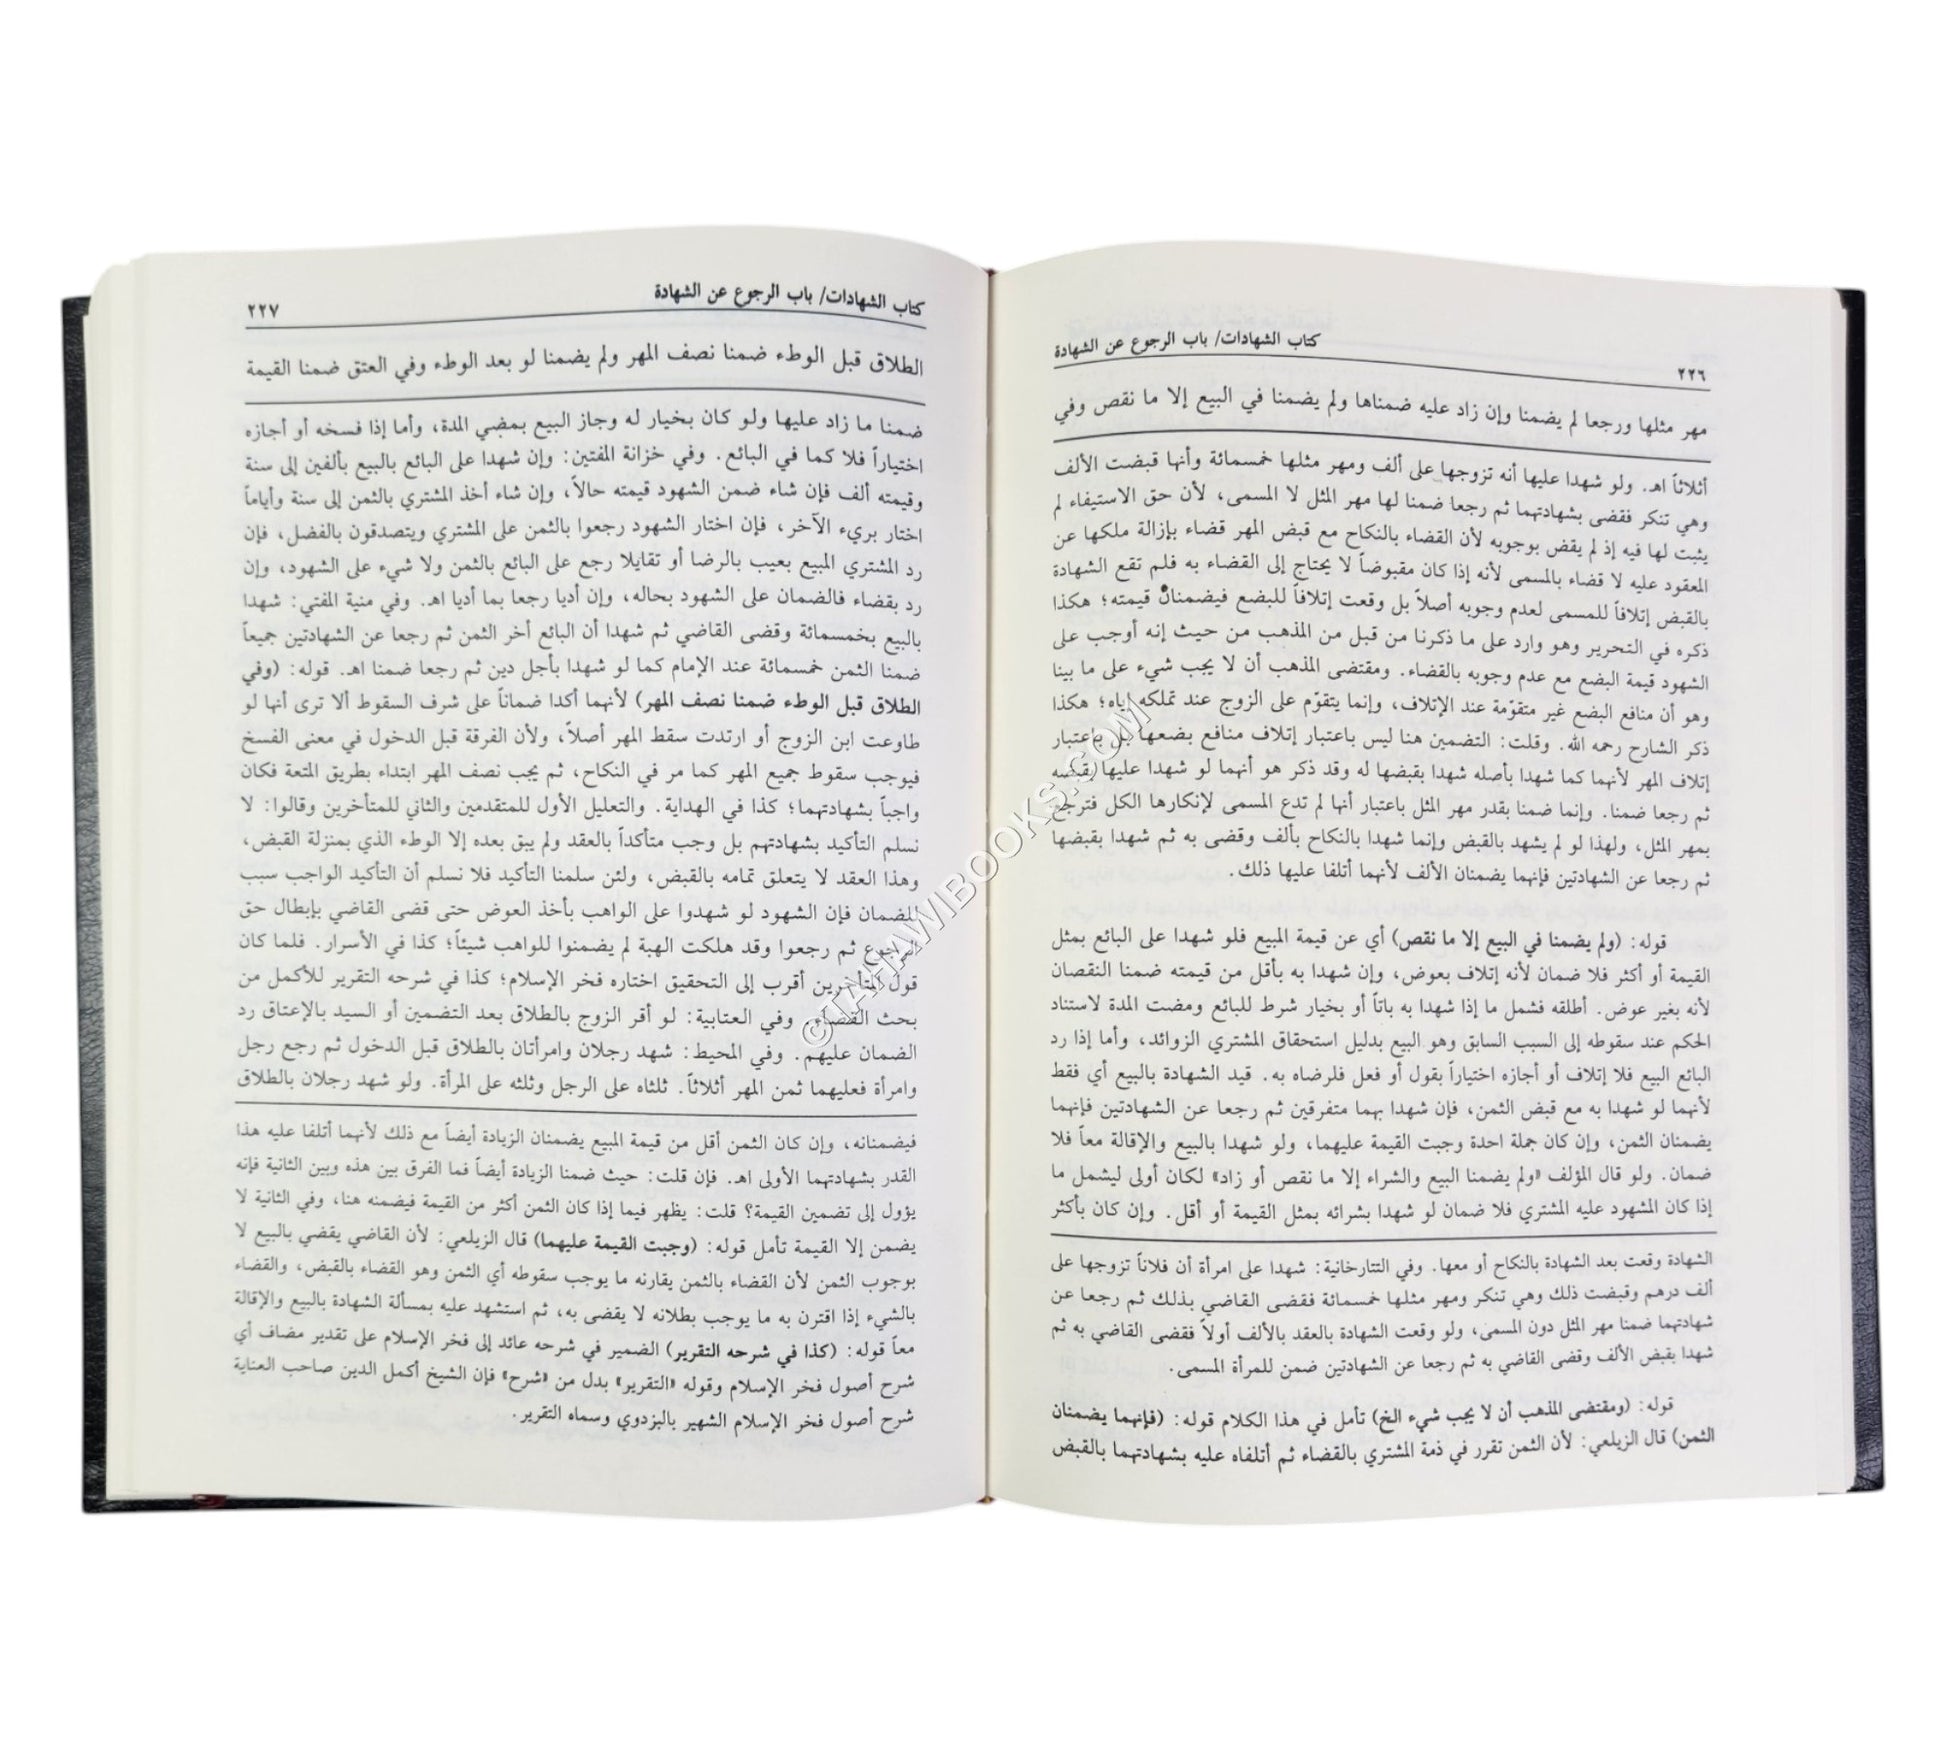 كتاب الشهادات/ باب الرجوع عن الشهادة
٢٢٦
مهر مثلها ورجعا لم يضمنا وإن زاد عليه ضمناها ولم يضمنا في البيع إلا ما نقص وفي
أثلاثاً اهـ. ولو شهدا عليها أنه تزوجها على ألف ومهر مثلها خمسمائة وأنها قبضت الألف
وهي تنكر فقضى بشهادتهما ثم رجعا ضمنا لها مهر المثل لا المسمى، لأن حق الاستيفاء لم
يثبت لها فيه إذ لم يقض بوجوبه لأن القضاء بالنكاح مع قبض المهر قضاء بإزالة ملكها عن
المعقود عليه لا قضاء بالمسمى لأنه إذا كان مقبوضاً لا يحتاج إلى القضاء به فلم تقع الشهادة
بالقبض إتلافاً للمسمى لعدم وجوبه أصلاً بل وقعت إتلافاً للبضع فيضمنان قيمته؛ هكذا
ذكره في التحرير وهو وارد على ما ذكرنا من قبل من المذهب من حيث إنه أوجب على
الشهود قيمة البضع مع عدم وجوبه بالقضاء. ومقتضى المذهب أن لا يجب شيء على ما بينا
وهو أن منافع البضع غير متقوّمة عند الإتلاف، وإنما يتقوّم على الزوج عند تملكه إياه؛ هكذا
ذكر الشارح رحمه الله. وقلت: التضمين هنا ليس باعتبار إتلاف منافع بضعها بل باعتبار
إتلاف المهر لأنهما كما شهدا بأصله شهدا بقبضها له وقد ذكر هو أنهما لو شهدا عليها بقبضه
ثم رجعا ضمنا. وإنما ضمنا بقدر مهر المثل باعتبار أنها لم تدع المسمى لإنكارها الكل فترجع
بمهر المثل، ولهذا لو لم يشهد بالقبض وإنما شهدا بالنكاح بألف وقضى به ثم شهدا بقبضها
ثم رجعا عن الشهادتين فإنهما يضمنان الألف لأنهما أتلفا عليها ذلك.
قوله: (ولم يضمنا في البيع إلا ما نقص) أي عن قيمة المبيع فلو شهدا على البائع بمثل
القيمة أو أكثر فلا ضمان لأنه إتلاف بعوض، وإن شهدا به بأقل من قيمته ضمنا النقصان
لأنه بغير عوض. أطلقه فشمل ما إذا شهدا به باتاً أو بخيار شرط للبائع ومضت المدة لاستناد
الحكم عند سقوطه إلى السبب السابق وهو البيع بدليل استحقاق المشتري الزوائد، وأما إذا رد
البائع البيع فلا إتلاف أو أجازه اختياراً بقول أو فعل فلرضاه به. قيد الشهادة بالبيع أي فقط
لأنهما لو شهدا به مع قبض الثمن، فإن شهدا بهما متفرقين ثم رجعا عن الشهادتين فإنهما
يضمنان الثمن، وإن كان جملة احدة وجبت القيمة عليهما، ولو شهدا بالبيع والإقالة معاً فلا
ضمان. ولو قال المؤلف «ولم يضمنا البيع والشراء إلا ما نقص أو زاد» لكان أولى ليشمل ما
إذا كان المشهود عليه المشتري فلا ضمان لو شهدا بشرائه بمثل القيمة أو أقل. وإن كان بأكثر
الشهادة وقعت بعد الشهادة بالنكاح أو معها. وفي التتارخانية: شهدا على امرأة أن فلاناً تزوجها على
ألف درهم وقبضت ذلك وهي تنكر ومهر مثلها خمسمائة فقضى القاضي بذلك ثم رجعا عن
شهادتهما ضمنا مهر المثل دون المسمى، ولو وقعت الشهادة بالعقد بالألف أولاً فقضى القاضي به ثم
شهدا بقبض الألف وقضى القاضي به ثم رجعا عن الشهادتين ضمن للمرأة المسمى.
قوله: (ومقتضى المذهب أن لا يجب شيء الخ) تأمل في هذا الكلام قوله: (فإنهما يضمنان
الثمن) قال الزيلعي: لأن الثمن تقرر في ذمة المشتري بالقضاء ثم أتلفاه عليه بشهادتهما بالقبض
كتاب الشهادات/ باب الرجوع عن الشهادة
٢٢٧
الطلاق قبل الوطء ضمنا نصف المهر ولم يضمنا لو بعد الوطء وفي العتق ضمنا القيمة
ضمنا ما زاد عليها ولو كان بخيار له وجاز البيع بمضي المدة، وأما إذا فسخه أو أجازه
اختياراً فلا كما في البائع. وفي خزانة المفتين: وإن شهدا على البائع بالبيع بألفين إلى سنة
وقيمته ألف فإن شاء ضمن الشهود قيمته حالاً، وإن شاء أخذ المشتري بالثمن إلى سنة وأياماً
اختار بريء الآخر، فإن اختار الشهود رجعوا بالثمن على المشتري ويتصدقون بالفضل، فإن
رد المشتري المبيع بعيب بالرضا أو تقايلا رجع على البائع بالثمن ولا شيء على الشهود، وإن
رد بقضاء فالضمان على الشهود بحاله، وإن أديا رجعا بما أديا اهـ. وفي منية المفتي: شهدا
بالبيع بخمسمائة وقضى القاضي ثم شهدا أن البائع أخر الثمن ثم رجعا عن الشهادتين جميعاً
ضمنا الثمن خمسمائة عند الإمام كما لو شهدا بأجل دين ثم رجعا ضمنا اهـ. قوله: (وفي
الطلاق قبل الوطء ضمنا نصف المهر) لأنهما أكدا ضماناً على شرف السقوط ألا ترى أنها لو
طاوعت ابن الزوج أو ارتدت سقط المهر أصلاً، ولأن الفرقة قبل الدخول في معنى الفسخ
فيوجب سقوط جميع المهر كما مر في النكاح، ثم يجب نصف المهر ابتداء بطريق المتعة فكان
واجباً بشهادتهما؛ كذا في الهداية. والتعليل الأول للمتقدمين والثاني للمتأخرين وقالوا: لا
نسلم التأكيد بشهادتهم بل وجب متأكداً بالعقد ولم يبق بعده إلا الوطء الذي بمنزلة القبض،
وهذا العقد لا يتعلق تمامه بالقبض، ولئن سلمنا التأكيد فلا نسلم أن التأكيد الواجب سبب
للضمان فإن الشهود لو شهدوا على الواهب بأخذ العوض حتى قضى القاضي بإبطال حق
الرجوع ثم رجعوا وقد هلكت الهبة لم يضمنوا للواهب شيئاً؛ كذا في الأسرار. فلما كان
قول المتأخرين أقرب إلى التحقيق اختاره فخر الإسلام؛ كذا في شرحه التقرير للأكمل من
بحث القضاء. وفي العتابية: لو أقر الزوج بالطلاق بعد التضمين أو السيد بالإعتاق رد
الضمان عليهم. وفي المحيط: شهد رجلان وامرأتان بالطلاق قبل الدخول ثم رجع رجل
وامرأة فعليهما ثمن المهر أثلاثاً. ثلثاه على الرجل وثلثه على المرأة. ولو شهد رجلان بالطلاق
فيضمنانه، وإن كان الثمن أقل من قيمة المبيع يضمنان الزيادة أيضاً مع ذلك لأنهما أتلفا عليه هذا
القدر بشهادتهما الأولى اهـ. فإن قلت: حيث ضمنا الزيادة أيضاً فما الفرق بين هذه وبين الثانية فإنه
يؤول إلى تضمين القيمة؟ قلت: يظهر فيما إذا كان الثمن أكثر من القيمة فيضمنه هنا، وفي الثانية لا
يضمن إلا القيمة تأمل قوله: (وجبت القيمة عليهما) قال الزيلعي: لأن القاضي يقضي بالبيع لا
بوجوب الثمن لأن القضاء بالثمن يقارنه ما يوجب سقوطه أي الثمن وهو القضاء بالقبض، والقضاء
بالشيء إذا اقترن به ما يوجب بطلانه لا يقضى به، ثم استشهد عليه بمسألة الشهادة بالبيع والإقالة
معاً قوله: (كذا في شرحه التقرير) الضمير في شرحه عائد إلى فخر الإسلام على تقدير مضاف أي
شرح أصول فخر الإسلام وقوله «التقرير» بدل من «شرح» فإن الشيخ أكمل الدين صاحب العناية
شرح أصول فخر الإسلام الشهير بالبزدوي وسماه التقرير.
©TAHAWIBOOKS.COM